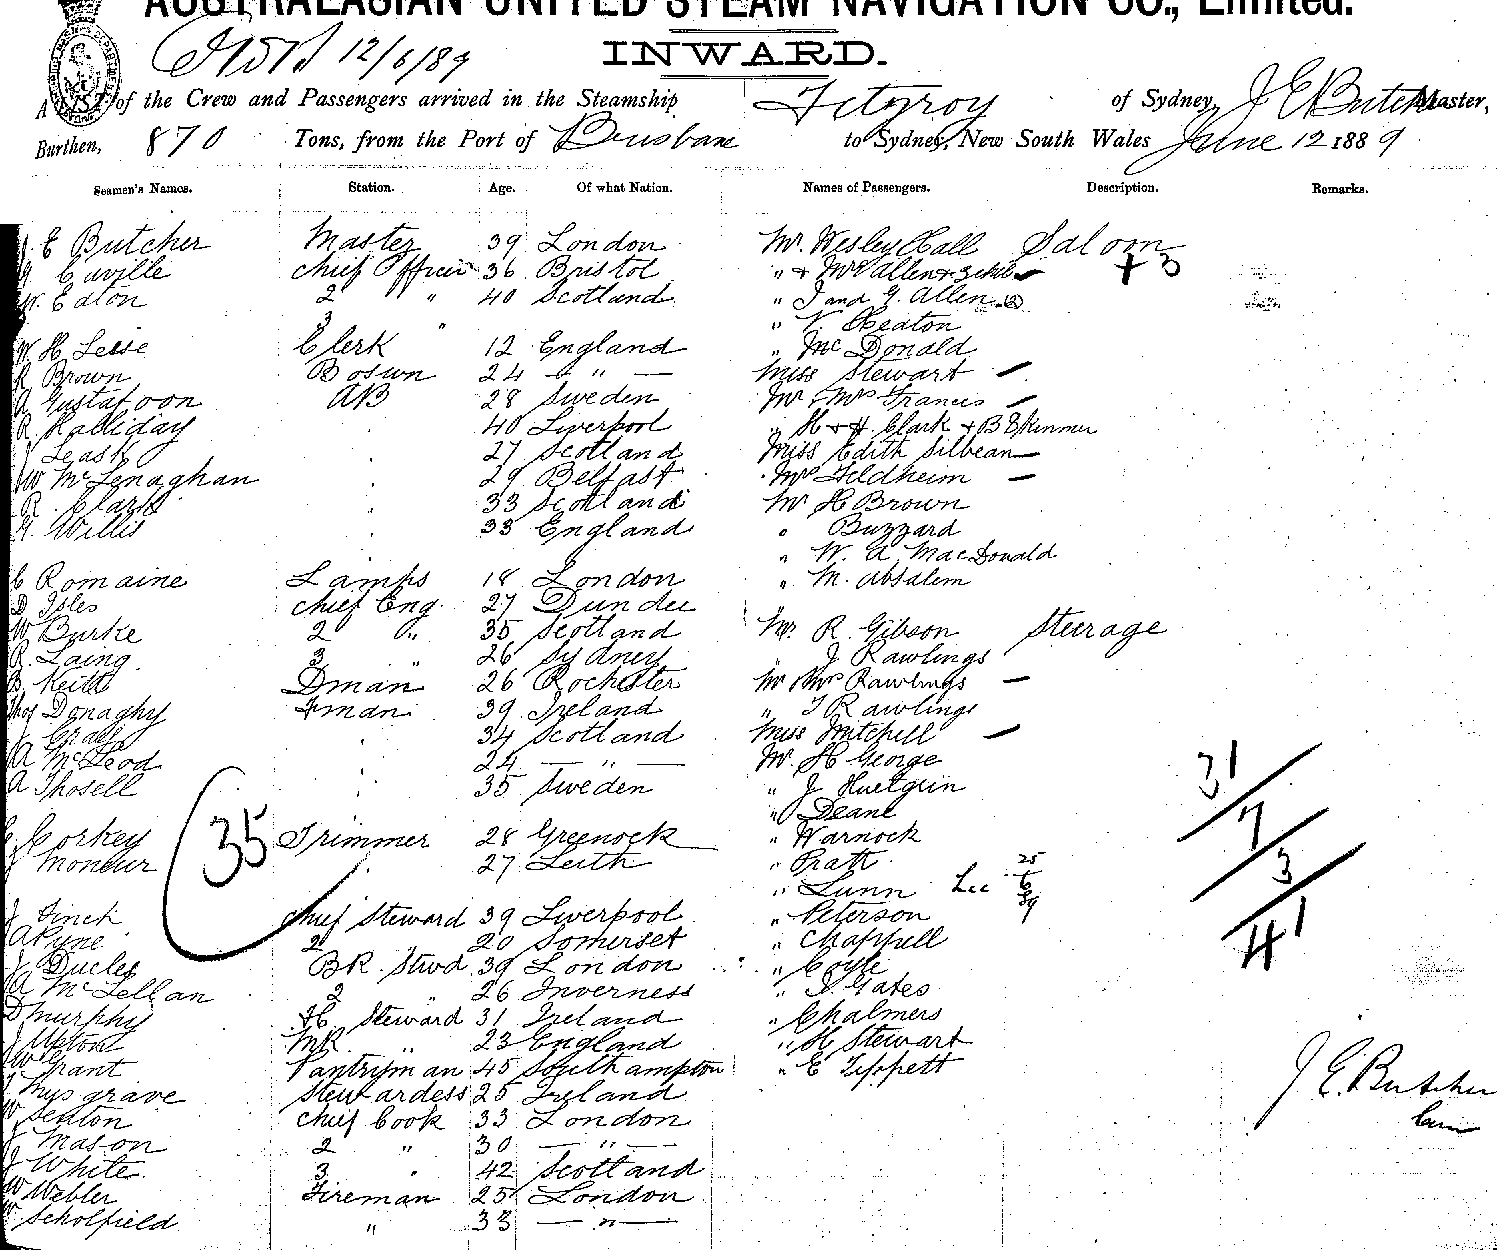 AUSTRALASIAN UNITED STEAM NAVIGATION CO., Limited.
12/6/89 INWARD.
A LIST of the Crew and Passengers arrived in the Steamship Fitzroy of Sydney, J E Butcher Master,
Burthen, 870 Tons, from the Port of Brisbane to Sydney, New South Wales June 12 1889
Seamen's Names. Station. Age. Of what Nation. Names of Passengers. Description. Remarks.
J. E Butcher Master 39 London Mr. Wesley Hall Saloon
Caville Chief Officer 36 Bristol " & Mrs Allen & 3 chil + 3
W. Eaton 2 " 40 Scotland " J and G. Allen (2)
3 " " V. Heaton
W. H Leise Clerk 12 England " McDonald
R Brown Bosun 24 — " — Miss Stewart —
A Gustafson AB 28 Sweden Mr & Mrs Francis —
R Halliday 40 Liverpool " H & H. Clark & B Skinner
J Leask 27 Scotland Miss Edith Silbean —
W McLenaghan 29 Belfast Mrs Feldheim —
R. Clark 33 Scotland Mr H Brown
Willis 33 England " Buzzard
" W. A. MacDonald
C Romaine Lamps 18 London " M. Absalem
D Isles Chief Eng. 27 Dundee
W Burke 2 " 35 Scotland Mr. R. Gibson Steerage
R. Laing 3 " 26 Sydney " J Rawlings
B. Keith Dman 26 Rochester Mr & Mrs Rawlings —
Thos Donaghy Fman 39 Ireland " T Rawlings
J Grael 34 Scotland Miss Mitchell —
A McLeod 24 — " — Mr. H George 31
A Thosell 35 Sweden " J Huetgrin
" Deane 7
C Corkey 35 Trimmer 28 Greenock " Warnock
J Moncur 27 Leith " Pratt 3
" Lunn Lee 25/6/89
J Finch Chief Steward 39 Liverpool " Peterson 41
A Pyne 2 " 20 Somerset " Chappell
J Duclet BR. Stwd 39 London " Coyle
A McLellan 2 " 26 Inverness " J. Gates
D Murphy FC Steward 31 Ireland " Chalmers
J Upton MR " 23 England " H Stewart
W Grant Pantryman 45 Southampton " E Tippett
Musgrave Stewardess 25 Ireland J. E. Butcher
W Seaton Chief Cook 33 London
J Mason 2 " 30 — " —
J White 3 " 42 Scotland
W Webler Fireman 25 London
W Scholfield " 33 — " —